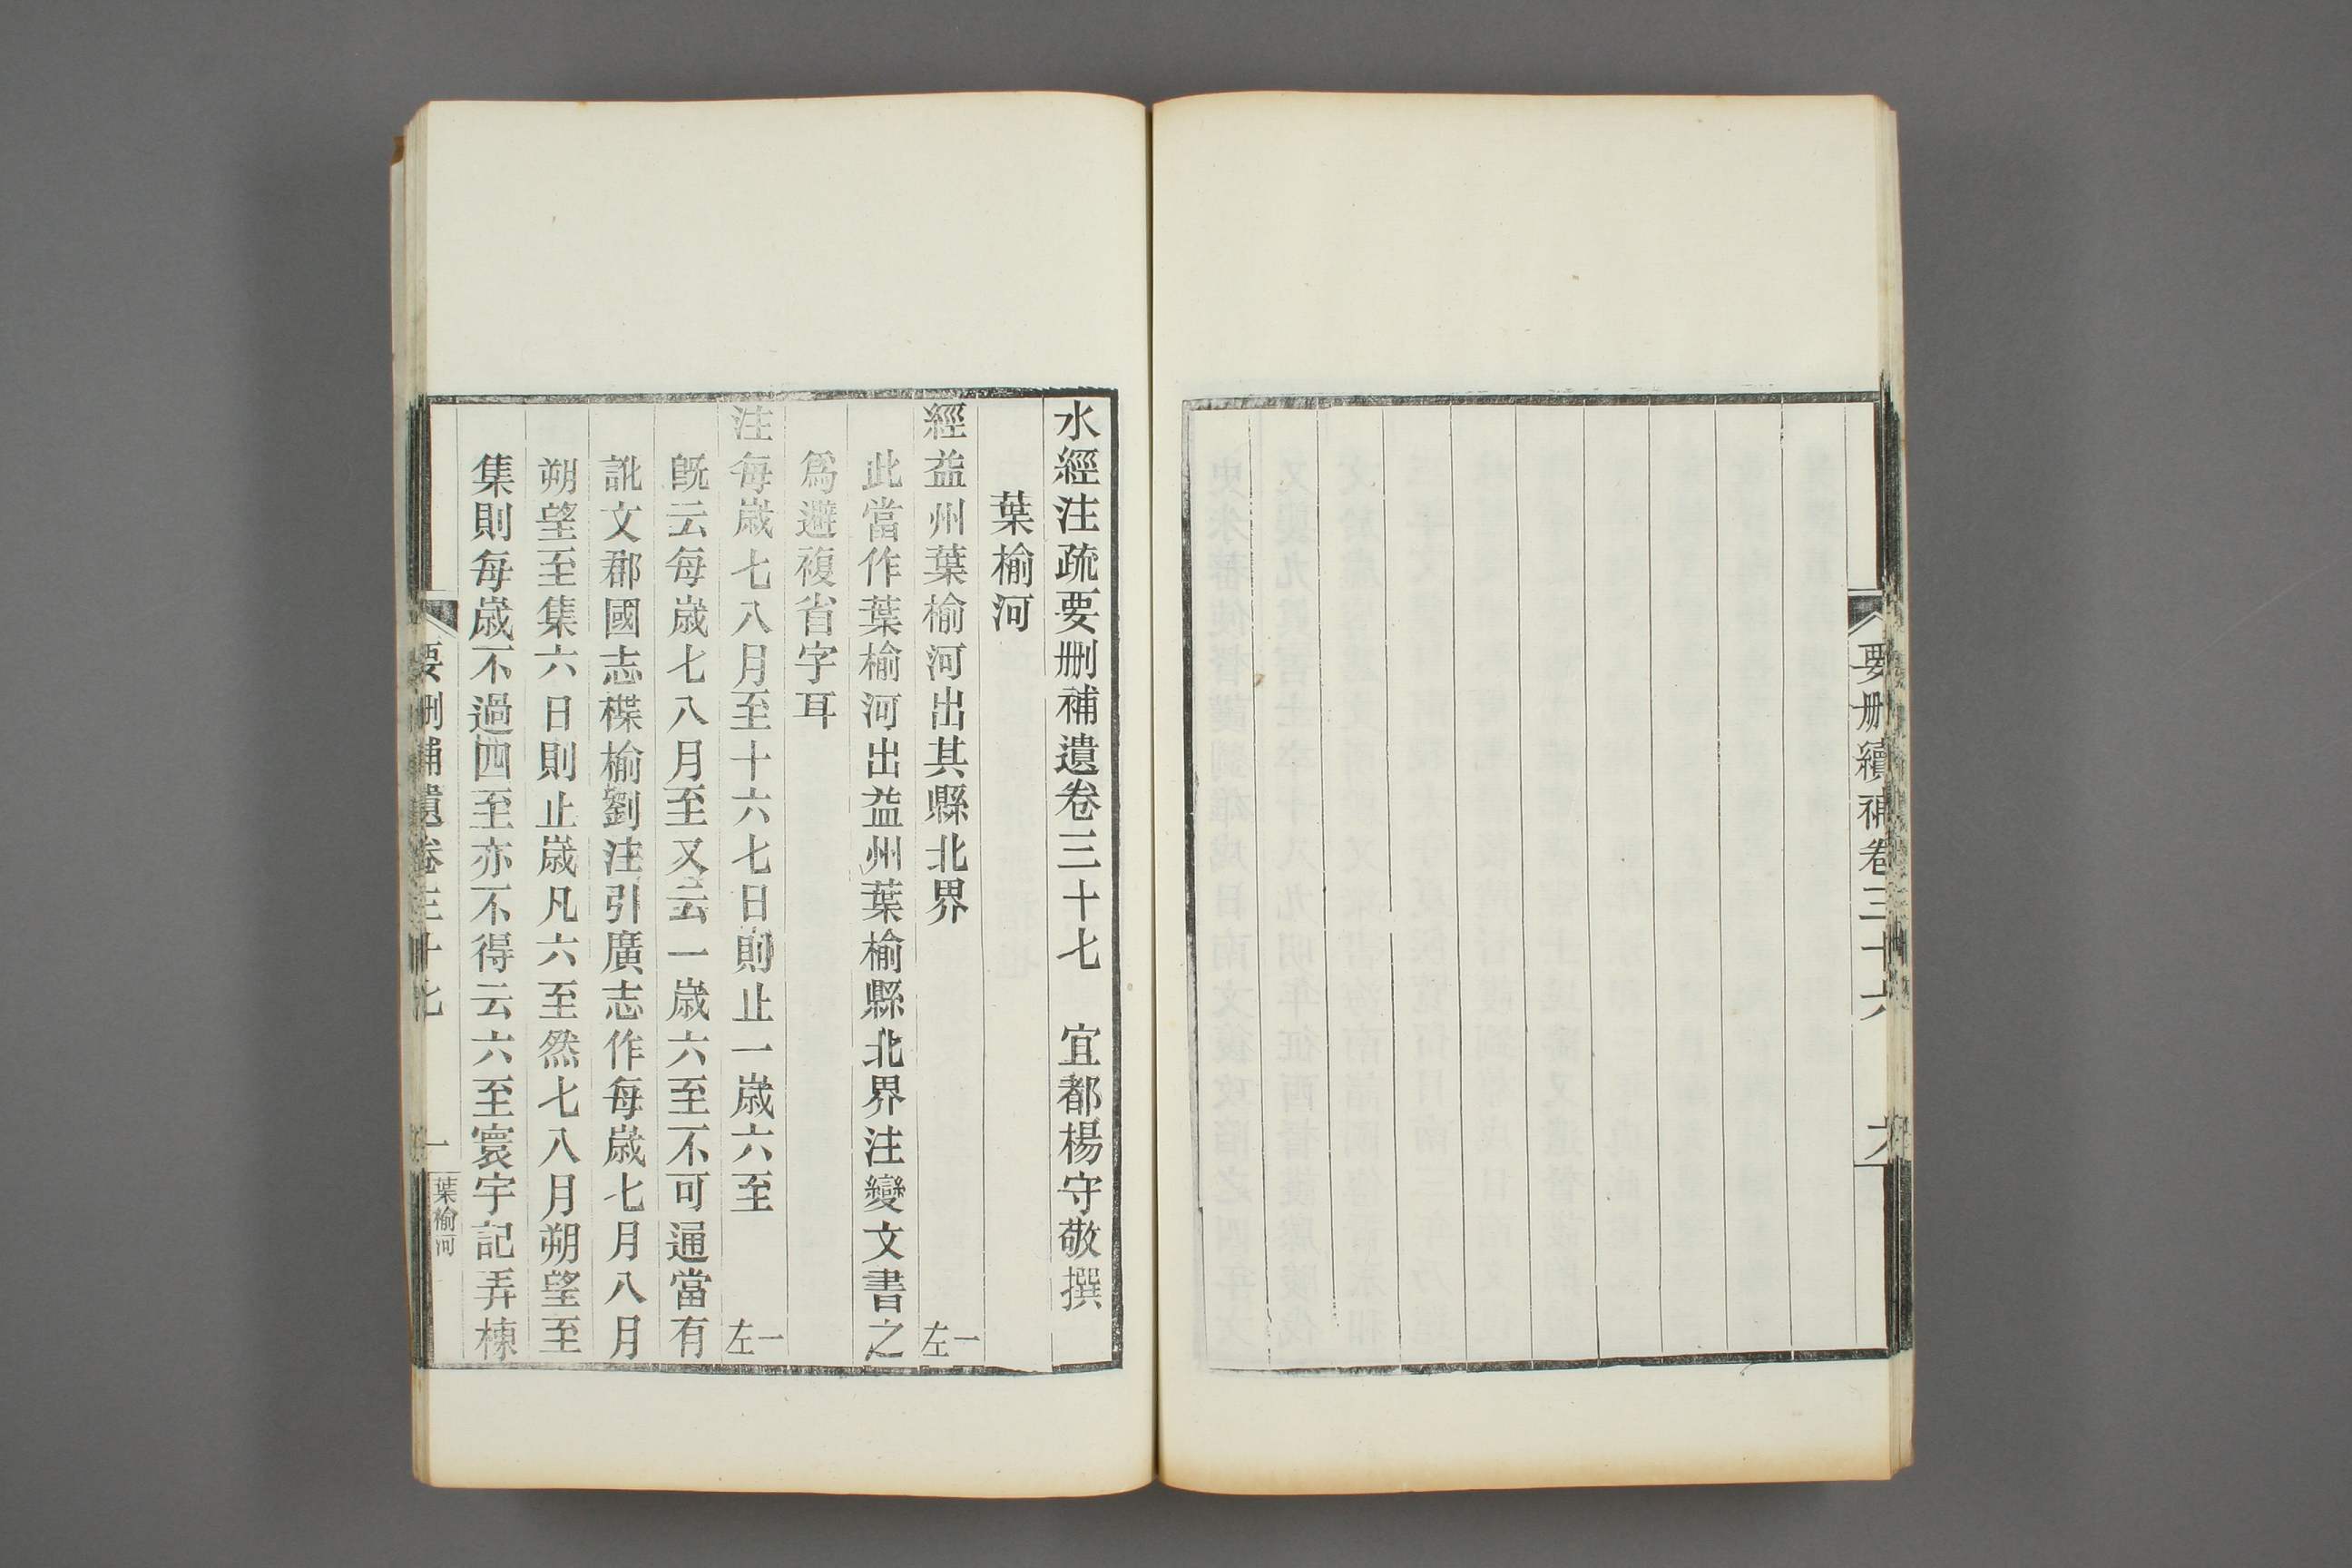 要刪續補卷三十六
六
水經注疏要刪補遺卷三十七　宜都楊守敬撰
葉榆河
經益州葉榆河出其縣北界　一左
此當作葉榆河出益州葉榆縣北界注變文書之
爲避複省字耳
注每歲七八月至十六七日則止一歲六至　一左
旣云每歲七八月至又云一歲六至不可通當有
訛文郡國志楪榆劉注引廣志作每歲七月八月
朔望至集六日則止歲凡六至然七八月朔望至
集則每歲不過四至亦不得云六至寰宇記弄棟
要刪補遺卷三十七
一
葉榆河